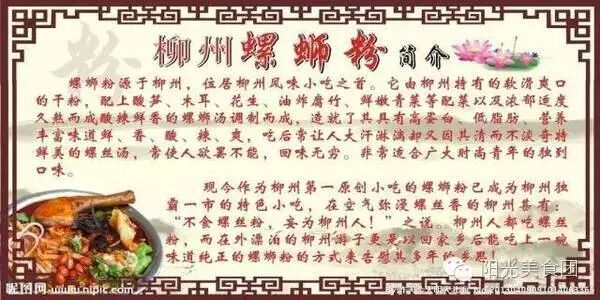 粉
柳州螺蛳粉简介
螺蛳粉源于柳州，位居柳州风味小吃之首。它由柳州特有的软滑爽口
的干粉，配上酸笋、木耳、花生、油炸腐竹、鲜嫩青菜等配菜以及浓郁适度
久熬而成酸辣鲜香的螺蛳汤调制而成，造就了其具有高蛋白、低脂肪、营养
丰富味道鲜、香、酸、辣、爽，吃后常让人大汗淋漓却又因其清而不淡奇特
鲜美的螺丝汤，常使人欲罢不能，回味无穷。非常适合广大时尚青年的独到
口味。
现今作为柳州第一原创小吃的螺蛳粉已成为柳州独
霸一市的特色小吃，在空气弥漫螺丝香的柳州甚有：
“不食螺丝粉，妄为柳州人！”之说。柳州人都吃螺丝
粉，而在外漂泊的柳州游子更是以回家乡后能吃上一碗
味道纯正的螺蛳粉的方式来告慰其多年的乡思
昵图网 www.nipic.com
阳光美食团